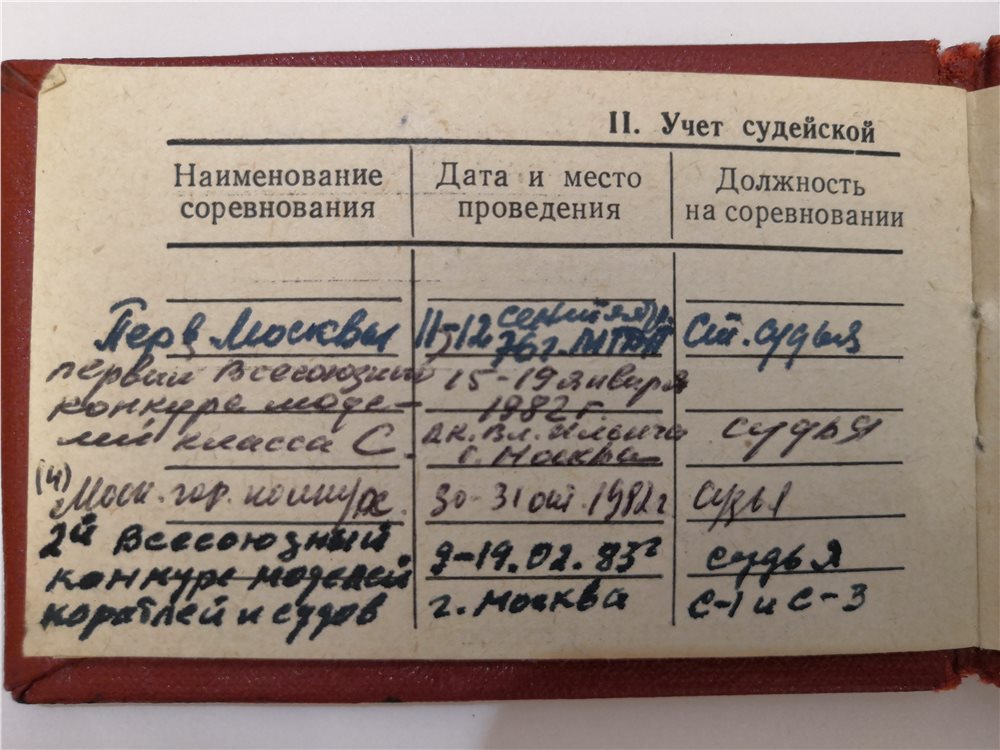 II. Учет судейской
Наименование соревнования
Дата и место проведения
Должность на соревновании
Перв Москвы
11-12 сентября 76г.
Ст. судья
Первый Всесоюзный
конкурс моде-
лей класса С.
15-19 января
1982 г.
ДК. Вл. Ильича
г. Москва
судья
(4)
Моск. гор. конкурс.
30-31 окт. 1982 г
судья
2й Всесоюзный
конкурс моделей
кораблей и судов
9-19.02.83г
г. Москва
судья
С-1 и С-3